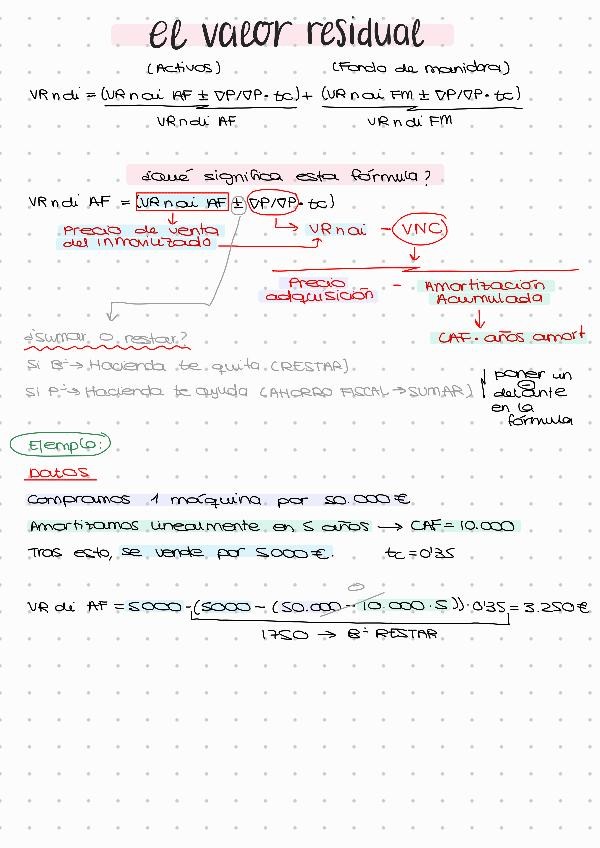 el valor residual
(Activos) (Fondo de maniobra)
VRndi = (VRnai AF ± ∇P/∇P · tc) + (VRnai FM ± ∇P/∇P · tc)
VRndi AF VRndi FM
¿Qué significa esta fórmula?
VRndi AF = (VRnai AF ± ∇P/∇P · tc)
Precio de venta del inmovilizado
→ VRnai - VNC
Precio adquisición - Amortización Acumulada
CAF · años amort
¿Sumar o restar?
Si Bº → Hacienda te quita (RESTAR)
Si Pº → Hacienda te ayuda (AHORRO FISCAL → SUMAR)
↓ poner un
⊖
delante
en la
fórmula
Ejemplo:
DATOS
Compramos 1 máquina por 50.000 €
Amortizamos linealmente en 5 años → CAF = 10.000
Tras esto, se vende por 5000 €. tc = 0'35
0
VR di AF = 5000 - (5000 - (50.000 - 10.000 · 5)) · 0'35 = 3.250 €
1750 → Bº RESTAR